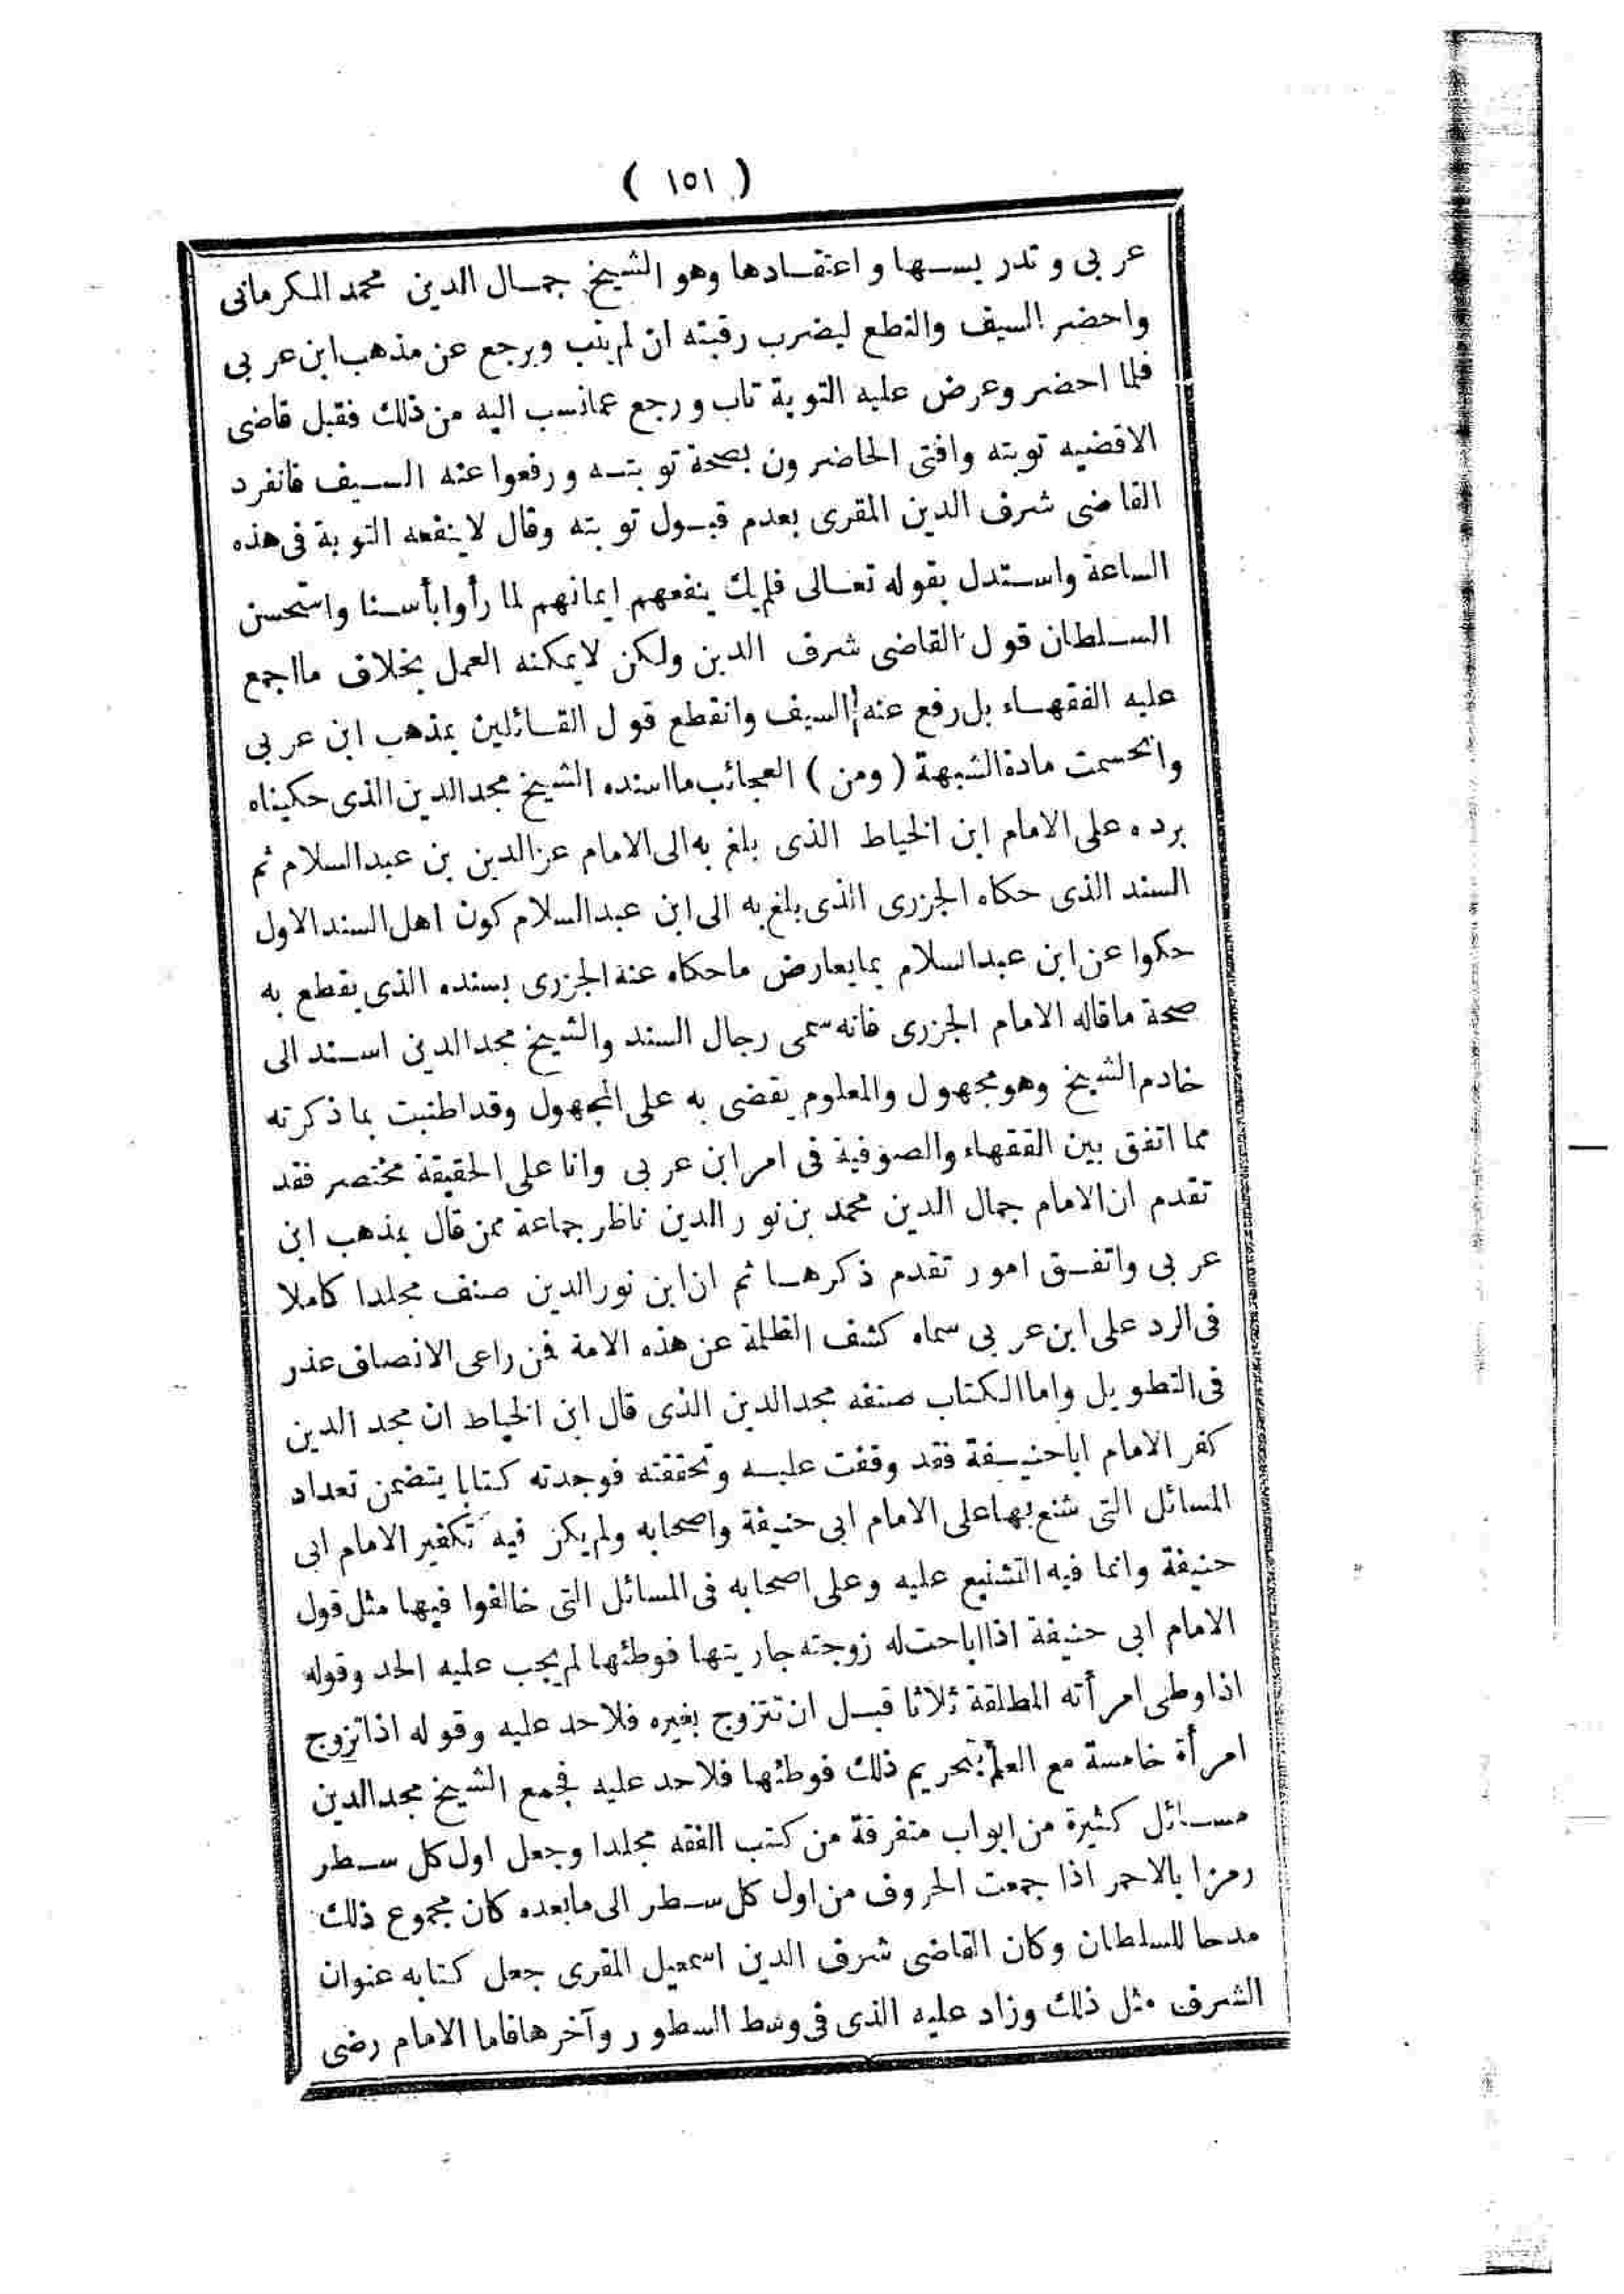 ( ١٥١ )
عربى وتدريسها واعتقادها وهو الشيخ جمال الدين محمد الكرمانى
واحضر السيف والنطع ليضرب رقبته ان لم يتب ويرجع عن مذهب ابن عربى
فلما احضر وعرض عليه التوبة تاب ورجع عما نسب اليه من ذلك فقبل قاضى
الاقضيه توبته وافتى الحاضرون بصحة توبته ورفعوا عنه السيف فانفرد
القاضى شرف الدين المقرى بعدم قبول توبته وقال لا ينفعه التوبة فى هذه
الساعة واستدل بقوله تعالى فلم يك ينفعهم ايمانهم لما رأوا بأسنا واستحسن
السلطان قول القاضى شرف الدين ولكن لا يمكنه العمل بخلاف ما اجمع
عليه الفقهاء بل رفع عنه السيف وانقطع قول القائلين بمذهب ابن عربى
وانحسمت مادة الشبهة ( ومن ) العجائب ما اسنده الشيخ مجد الدين الذى حكيناه
برده على الامام ابن الخياط الذى بلغ به الى الامام عز الدين بن عبد السلام ثم
السند الذى حكاه الجزرى الذى بلغ به الى ابن عبد السلام كون اهل السند الاول
حكوا عن ابن عبد السلام بما يعارض ما حكاه عنه الجزرى بسنده الذى يقطع به
صحة ما قاله الامام الجزرى فانه سمى رجال السند والشيخ مجد الدين اسند الى
خادم الشيخ وهو مجهول والمعلوم يقضى به على المجهول وقد اطنبت بما ذكرته
مما اتفق بين الفقهاء والصوفية فى امر ابن عربى وانا على الحقيقة مختصر فقد
تقدم ان الامام جمال الدين محمد بن نور الدين ناظر جماعة ممن قال بمذهب ابن
عربى واتفق امور تقدم ذكرها ثم ان ابن نور الدين صنف مجلدا كاملا
فى الرد على ابن عربى سماه كشف الظلمة عن هذه الامة فمن راعى الانصاف عذر
فى التطويل واما الكتاب صنفه مجد الدين الذى قال ابن الخياط ان مجد الدين
كفر الامام ابا حنيفة فقد وقفت عليه وتحققته فوجدته كتابا يتضمن تعداد
المسائل التى شنع بها على الامام ابى حنيفة واصحابه ولم يكن فيه تكفير الامام ابى
حنيفة وانما فيه التشنيع عليه وعلى اصحابه فى المسائل التى خالفوا فيها مثل قول
الامام ابى حنيفة اذا اباحت له زوجته جاريتها فوطئها لم يجب عليه الحد وقوله
اذا وطى امرأته المطلقة ثلاثا قبل ان تتزوج بغيره فلا حد عليه وقوله اذا تزوج
امرأة خامسة مع العلم بتحريم ذلك فوطئها فلا حد عليه فجمع الشيخ مجد الدين
مسائل كثيرة من ابواب متفرقة من كتب الفقه مجلدا وجعل اول كل سطر
رمزا بالاحمر اذا جمعت الحروف من اول كل سطر الى ما بعده كان مجموع ذلك
مدحا للسلطان وكان القاضى شرف الدين اسمعيل المقرى جعل كتابه عنوان
الشرف مثل ذلك وزاد عليه الذى فى وسط السطور وآخرها فاما الامام رضى